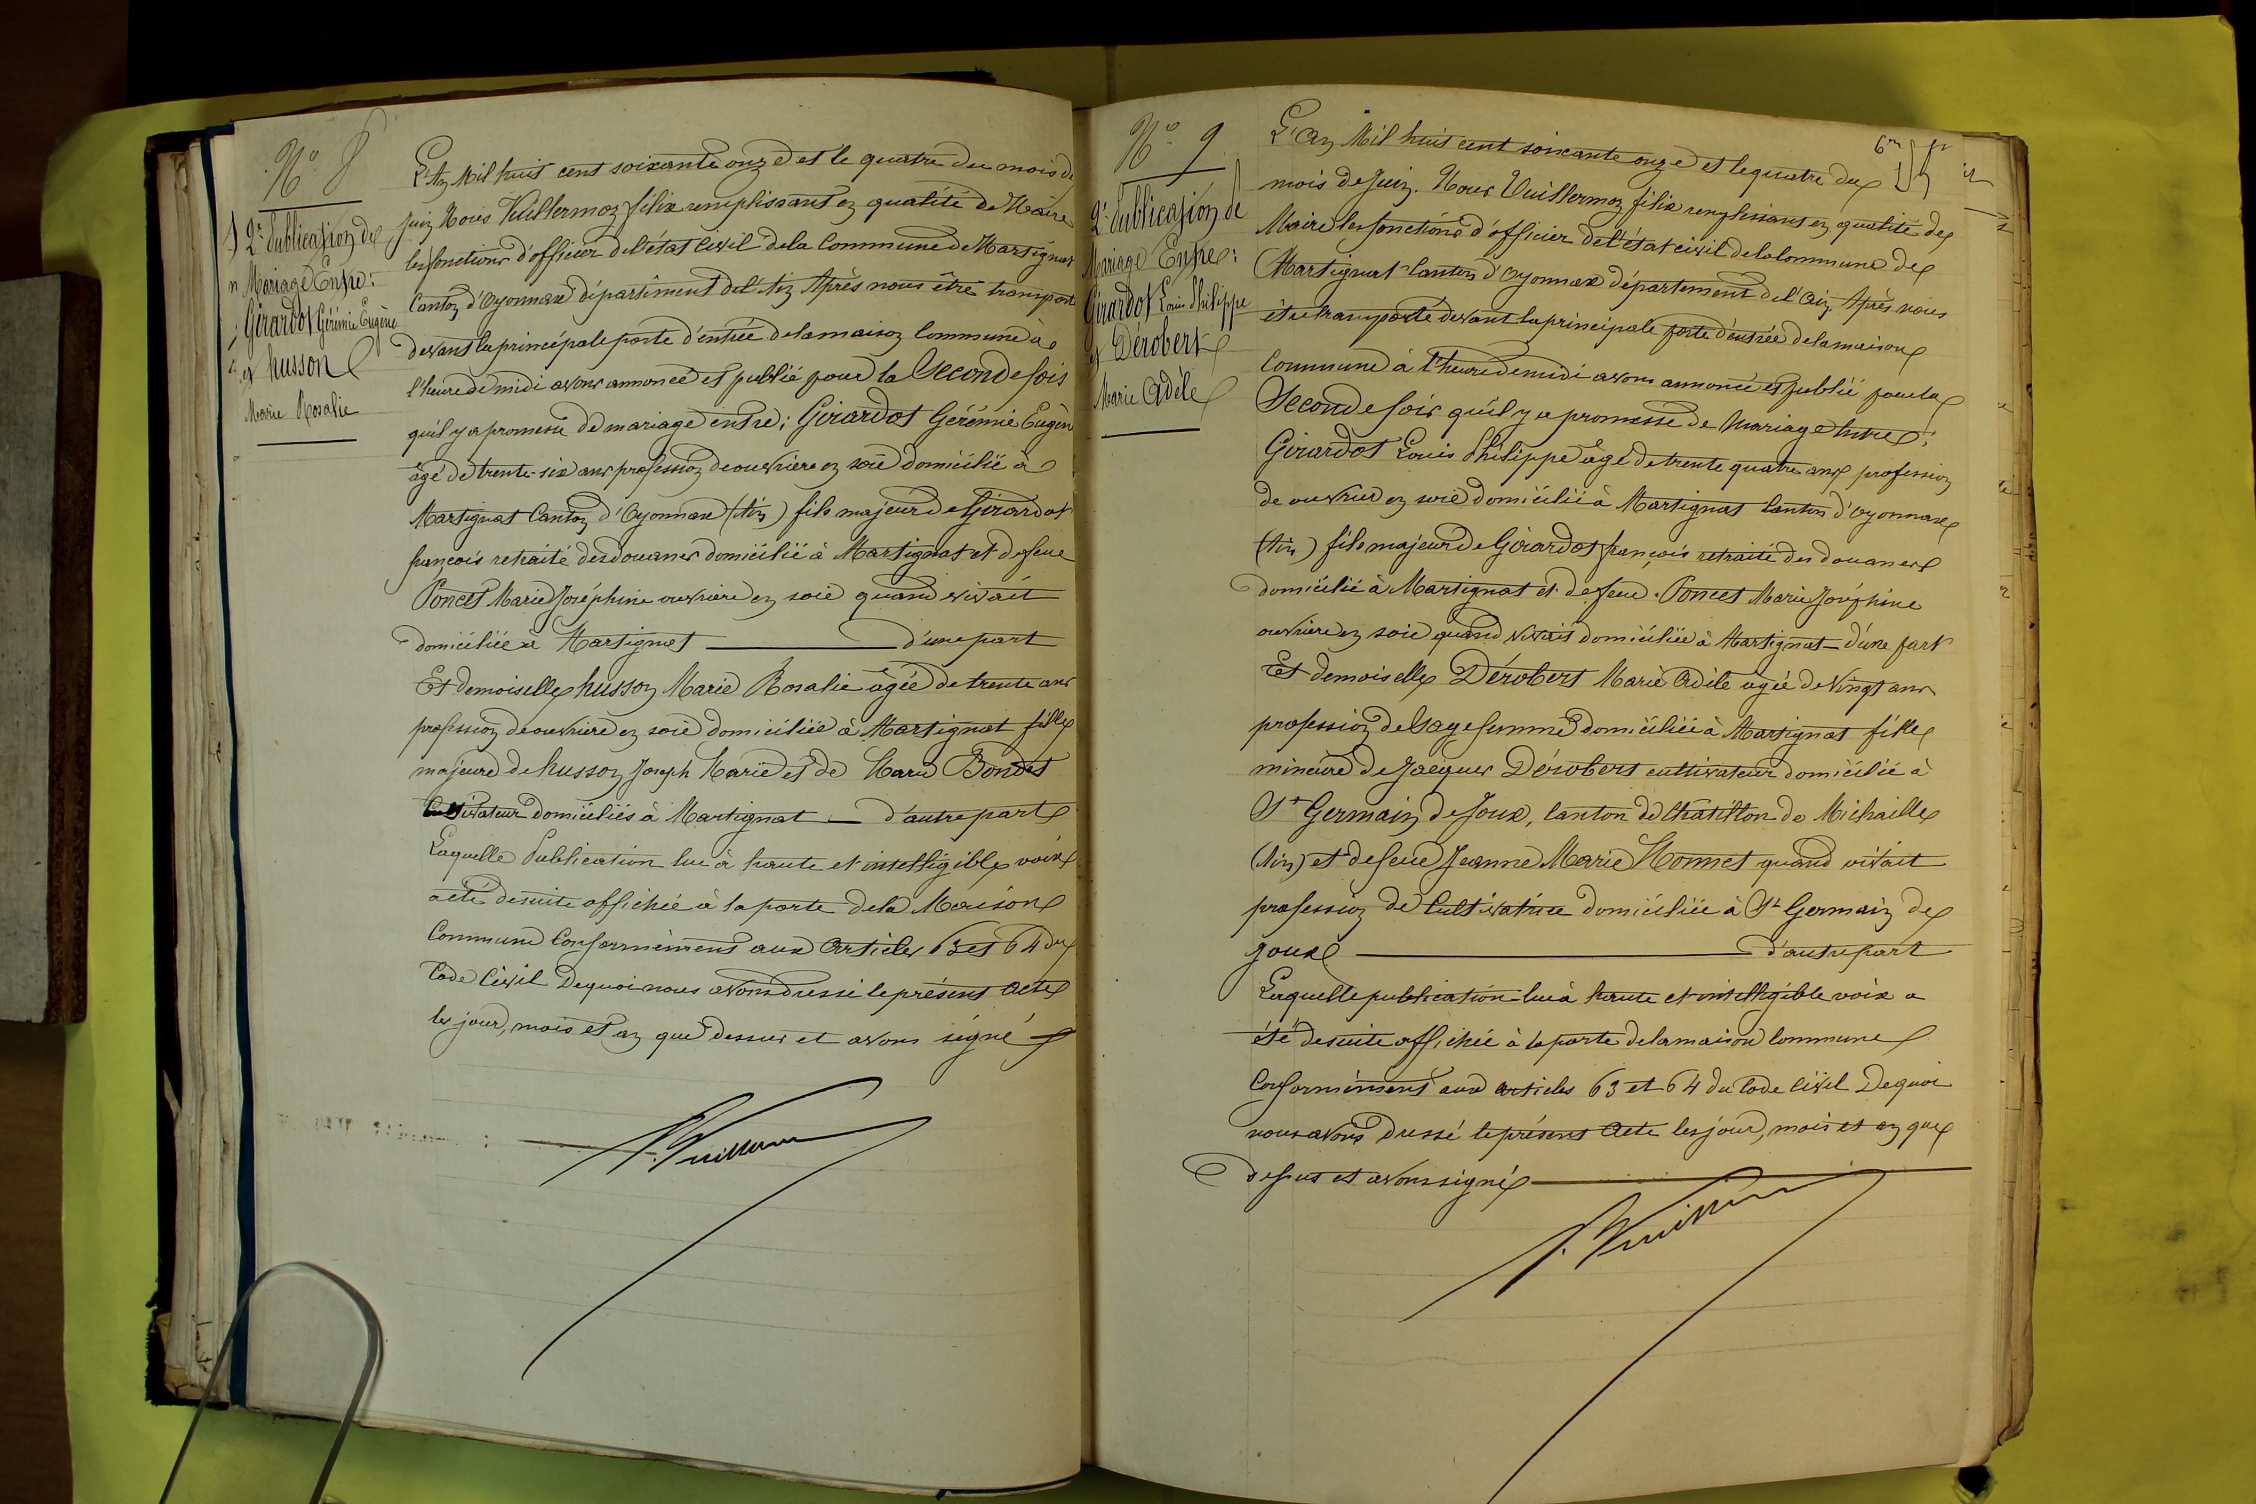 N° 8
2e Publication de
Mariage Entre :
Girardot Gérémie Eugène
et husson
Marie Rosalie
L'An Mil huit cent soixante onze et le quatre du mois de
juin Nous Vuillermoz félix remplissant en qualité de Maire
les fonctions d'officier de l'état Civil de la Commune de Martignat
Canton d'Oyonnax département de l'Ain Après nous être transporté
devant la principale porte d'entrée de la maison Commune à
l'heure de midi avons annoncé et publié pour la Seconde fois
qu'il y a promesse de mariage entre ; Girardot Gérémie Eugène
âgé de trente-six ans profession de ouvrière en soie domicilié à
Martignat Canton d'Oyonnax (Ain) fils majeur de Girardot
françois retraité des douanes domicilié à Martignat et de feue
Poncet Marie Joséphine ouvrière en soie quand vivait
domiciliée à Martignat d'une part
Et demoiselle husson Marie Rosalie âgée de trente ans
profession de ouvrière en soie domiciliée à Martignat fille
majeure de husson Joseph Marie et de Marie Bondet
Cultivateur domiciliés à Martignat d'autre part
Laquelle Publication lue à haute et intelligible voix
a été de suite affichée à la porte de la Maison
Commune Conformément aux Articles 63 et 64 du
Code Civil De quoi nous avons dressé le présent Acte
les jour, mois et an que dessus et avons signé
f. Vuillermoz
N° 9
2e Publication de
Mariage Entre :
Girardot Louis Philippe
et Dérobert
Marie Adèle
L'An Mil huit cent soixante onze et le quatre du
mois de Juin. Nous Vuillermoz félix remplissant en qualité de
Maire les fonctions d'officier de l'état civil de la Commune de
Martignat Canton d'Oyonnax département de l'Ain, Après nous
être transporté devant la principale porte d'entrée de la maison
Commune à l'heure de midi avons annoncé et publié pour la
Seconde fois qu'il y a promesse de Mariage Entre ;
Girardot Louis Philippe âgé de trente quatre ans profession
de ouvrier en soie domicilié à Martignat Canton d'Oyonnax
(Ain) fils majeur de Girardot françois retraité des douanes
domicilié à Martignat et de feue Poncet Marie Joséphine
ouvrière en soie quand vivait domiciliée à Martignat d'une part
Et demoiselle Dérobert Marie Adèle âgée de Vingt ans
profession de Sage femme domiciliée à Martignat fille
mineure de Jacques Dérobert cultivateur domicilié à
St Germain de Joux, Canton de Chatillon de Michaille
(Ain) et de feue Jeanne Marie Monnet quand vivait
profession de Cultivatrice domiciliée à St Germain de
Joux d'autre part
Laquelle publication lue à haute et intelligible voix a
été de suite affichée à la porte de la maison Commune
Conformément aux articles 63 et 64 du Code Civil De quoi
nous avons dressé le présent Acte les jour, mois et an que
dessus et avons signé
f. Vuillermoz